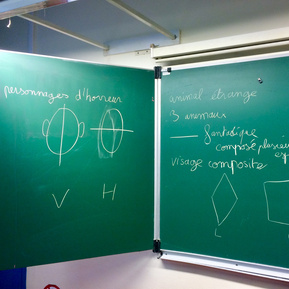 personnages d'horreur
V H
animal étrange
3 animaux
fantastique
composé plusieurs
visage composite
L